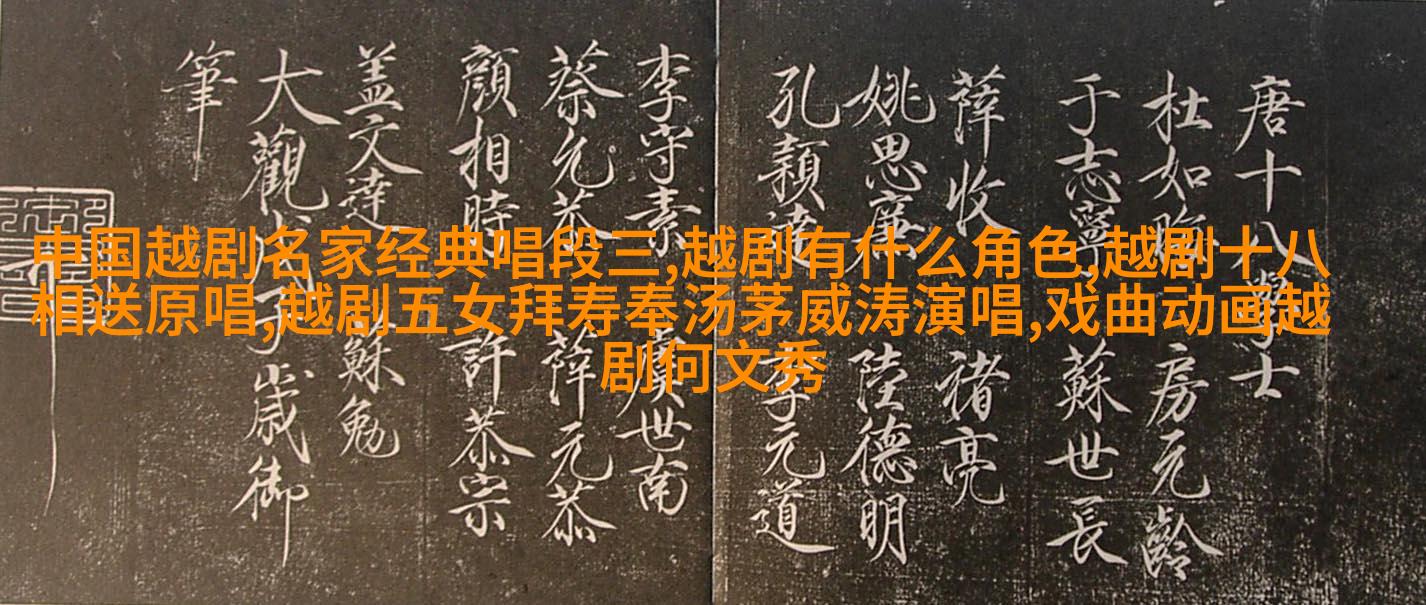 中国越剧名家经典唱段三,越剧有什么角色,越剧十八
相送原唱,越剧五女拜寿奉汤茅威涛演唱,戏曲动画越
剧何文秀
唐十八學士
杜如晦 房元齡
于志寧 蘇世長
薛收 褚亮
姚思廉 陸德明
孔穎達 李元道
李守素 虞世南
蔡允恭 薛元恭
顏相時 許恭宗
盖文達 蘇勉
大觀戊子歲御
筆